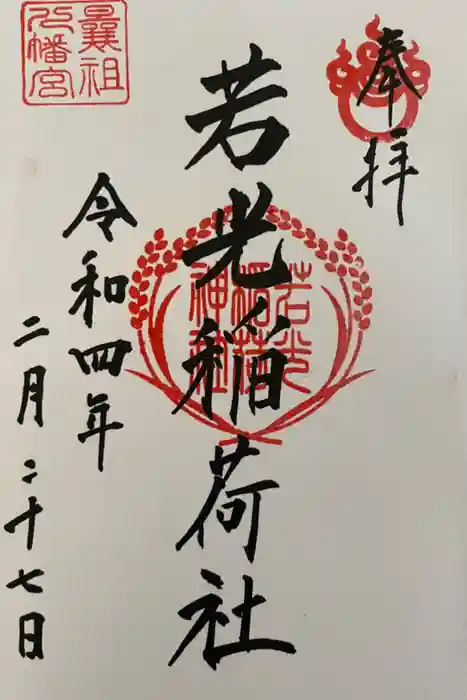 奉拝
若光
稲荷
神社
若光稲荷社
令和四年
二月二十七日
曩祖
八幡宮